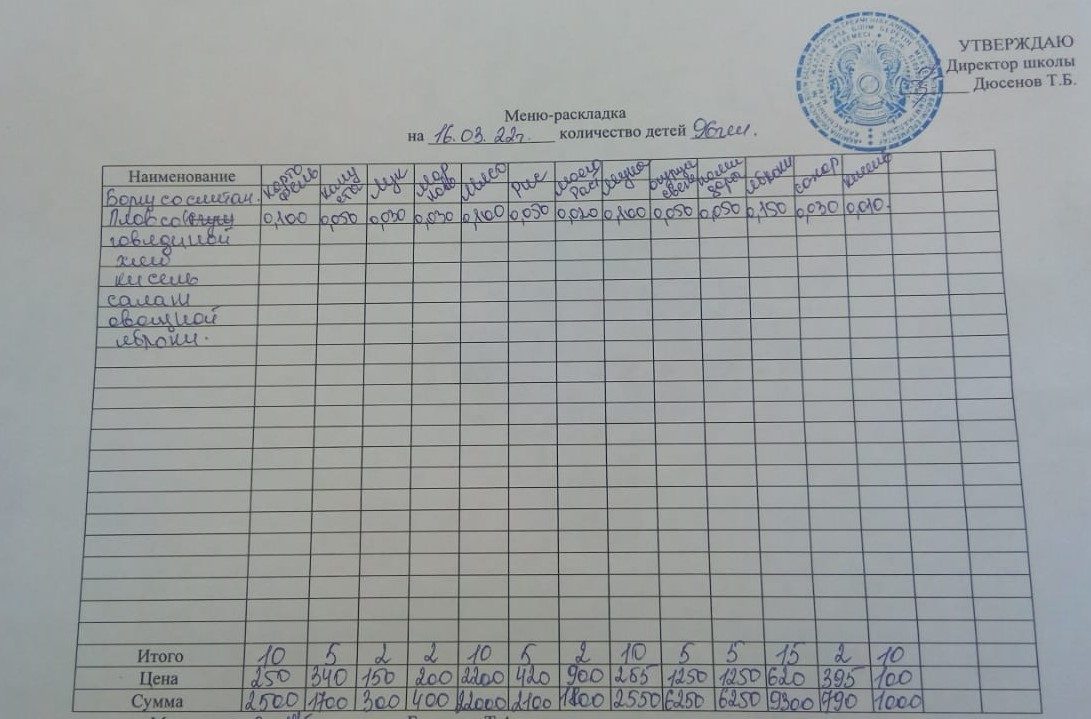 УТВЕРЖДАЮ
Директор школы
Дюсенов Т.Б.
Меню-раскладка
на 16.03.22г. количество детей 96чел.
Наименование картофель капуста лук морковь мясо рис масло раст огурцы свеж помидоры яблоки сахар кисель
Борщ со сметан.
Плов со 0,100 0,050 0,030 0,030 0,100 0,050 0,020 0,100 0,050 0,050 0,150 0,030 0,010.
говядиной
хлеб
кисель
салат
овощной
яблоки.
Итого 10 5 2 2 10 5 2 10 5 5 15 2 10
Цена 250 340 150 200 2200 420 900 255 1250 1250 620 395 100
Сумма 2500 1700 300 400 22000 2100 1800 2550 6250 6250 9300 790 1000